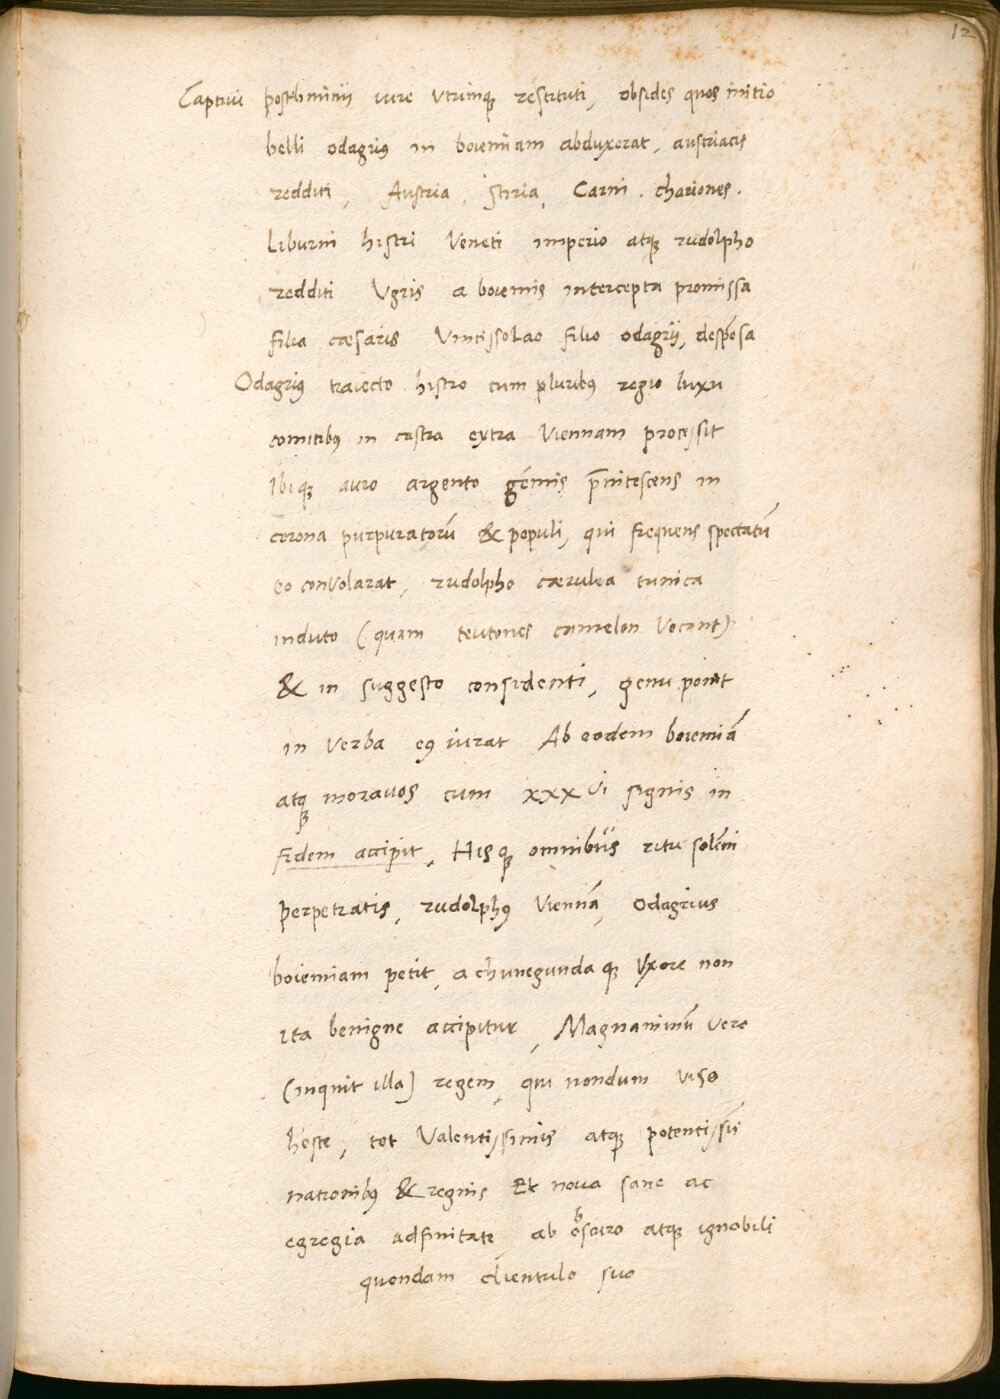 12
Captiui postliminij iure vtrimq; restituti, obsides quos initio
belli odagriꝰ in boiemiam abduxerat, austriacis
redditi, Austria, stiria, Carni. chariones.
Liburni histri Veneti imperio atq; rudolpho
redditi Vgris a boiemis intercepta promissa
filia cæsaris Vintissolao filio odagrij, despõsa
Odagriꝰ traiecto histro cum pluribꝰ regio luxu
comitibꝰ in castra extra Viennam processit
Ibiq; auro argento gẽmis p̃nitescens in
corona purpuratorũ & populi, qui frequens spectatũ
eo convolarat, rudolpho cærulea tunica
induto (quam teutones camelon vocant)
& in suggesto considenti, genu ponit
in verba eꝰ iurat Ab eodem boiemiã
atq; morauos cum xxxvi signis in
fidem accipit, Hisq; omnibus ritu solẽni
perpetratis, rudolphꝰ Viennã, Odagrius
boiemiam petit, a chunegundaq; Vxore non
ita benigne accipitur, Magnanimũ vero
(inquit illa) regem, qui nondum viso
hoste, tot Valentissimis atq; potentissĩs
nationibꝰ & regnis Et noua sane ac
egregia adfinitate, ab obscuro atq; ignobili
quondam clientulo suo